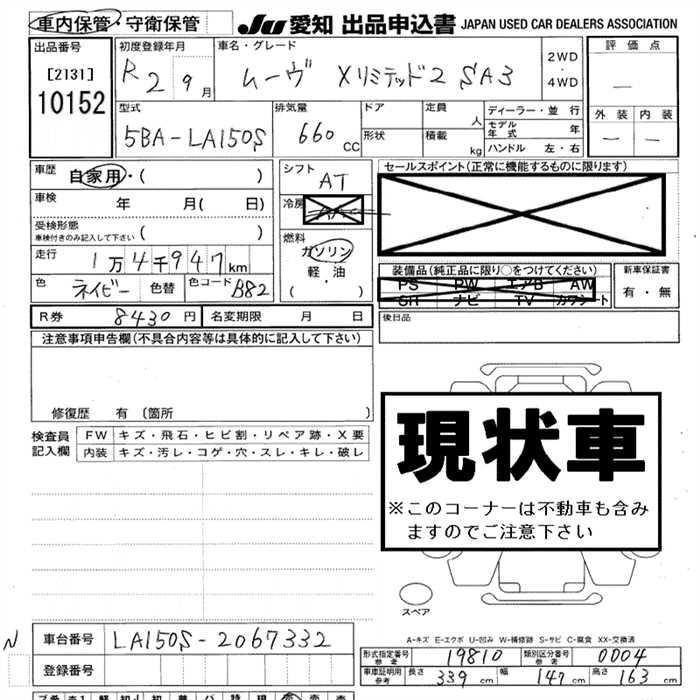 車内保管・守衛保管
JU 愛知 出品申込書 JAPAN USED CAR DEALERS ASSOCIATION
出品番号
[2131]
10152
初度登録年月
R2 9月
車名・グレード
ムーヴ XリミテッドⅡ SA3
2WD
・
4WD
評価点
—
外装 内装
— —
型式
5BA-LA150S
排気量
660 CC
ドア
形状
定員 人
積載 kg
ディーラー・並行
モデル年式 年
ハンドル 左・右
車歴
自家用・( )
車検 年 月( 日)
受検形態
車検付きのみ記入して下さい ( )
走行
1万4千947km
色 ネイビー 色替 色コード B82
シフト
AT
冷房
燃料
ガソリン
軽・油
( ・ )
セールスポイント(正常に機能するものに限ります)
装備品(純正品に限り○をつけてください)
PS PW エアB AW
SR ナビ TV カワシート
新車保証書
有・無
R券 8430円 名変期限 月 日
後日品
注意事項申告欄(不具合内容等は具体的に記入して下さい)
修復歴 有 (箇所 )
検査員
記入欄
FW キズ・飛石・ヒビ割・リペア跡・X要
内装 キズ・汚レ・コゲ・穴・スレ・キレ・破レ
現状車
※このコーナーは不動車も含み
ますのでご注意下さい
スペア
A-キズ E-エクボ U-凹み W-補修跡 S-サビ C-腐食 XX-交換済
N
車台番号 LA150S-2067332
登録番号
形式指定番号 参考 19810 類別区分番号 参考 0004
車庫証明用 参考 長さ 339 cm 幅 147 cm 高さ 163 cm